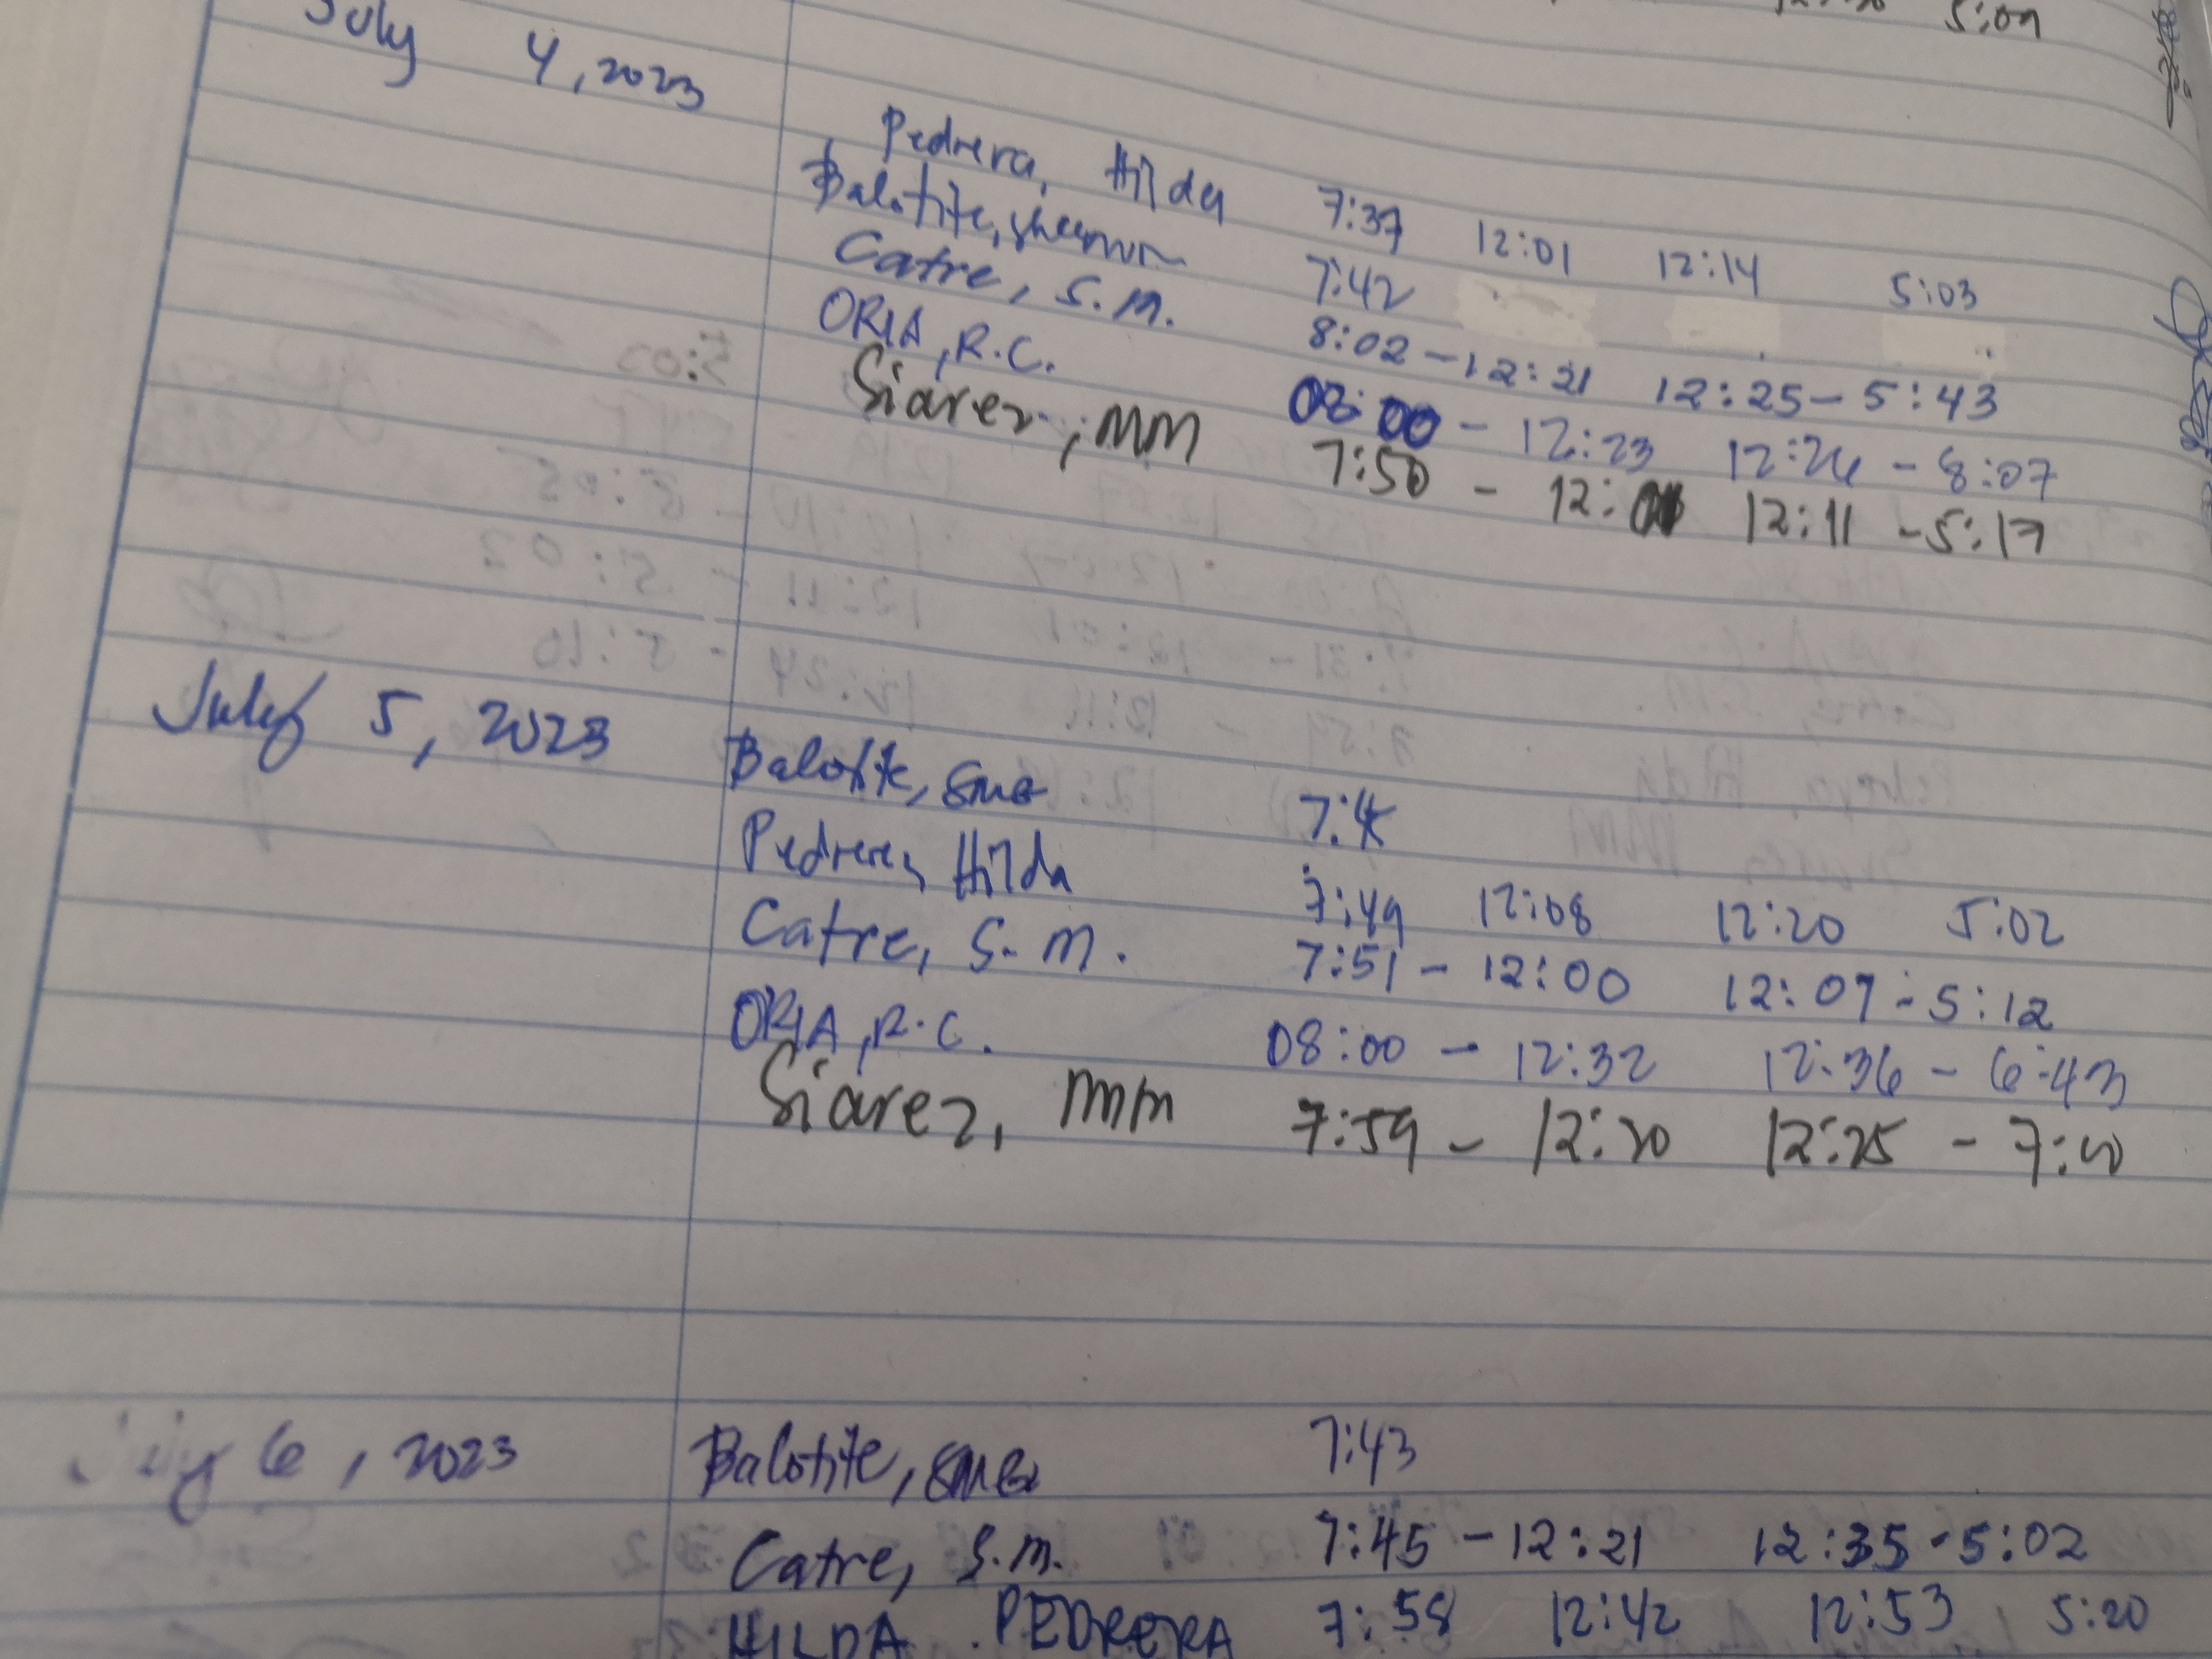 5:09
July 4, 2023
Pedrera, Hilda 7:37 12:01 12:14 5:03
Balotite, 7:42
Catre, S.M. 8:02 - 12:21 12:25 - 5:43
ORIA, R.C. 08:00 - 12:23 12:26 - 8:07
Siarez, MM 7:50 - 12: 12:11 - 5:17
July 5, 2023
Balotite, SMB
Pedrera, Hilda 7:49 12:08 12:20 5:02
Catre, S.M. 7:51 - 12:00 12:07 - 5:12
ORIA, R.C. 08:00 - 12:32 12:36 - 6:43
Siarez, MM 7:59 - 12:20 12:25 -
July 6, 2023
Balotite, SMB 7:43
Catre, S.M. 7:45 - 12:21 12:35 - 5:02
HILDA PEDRERA 7:58 12:42 12:53 5:20